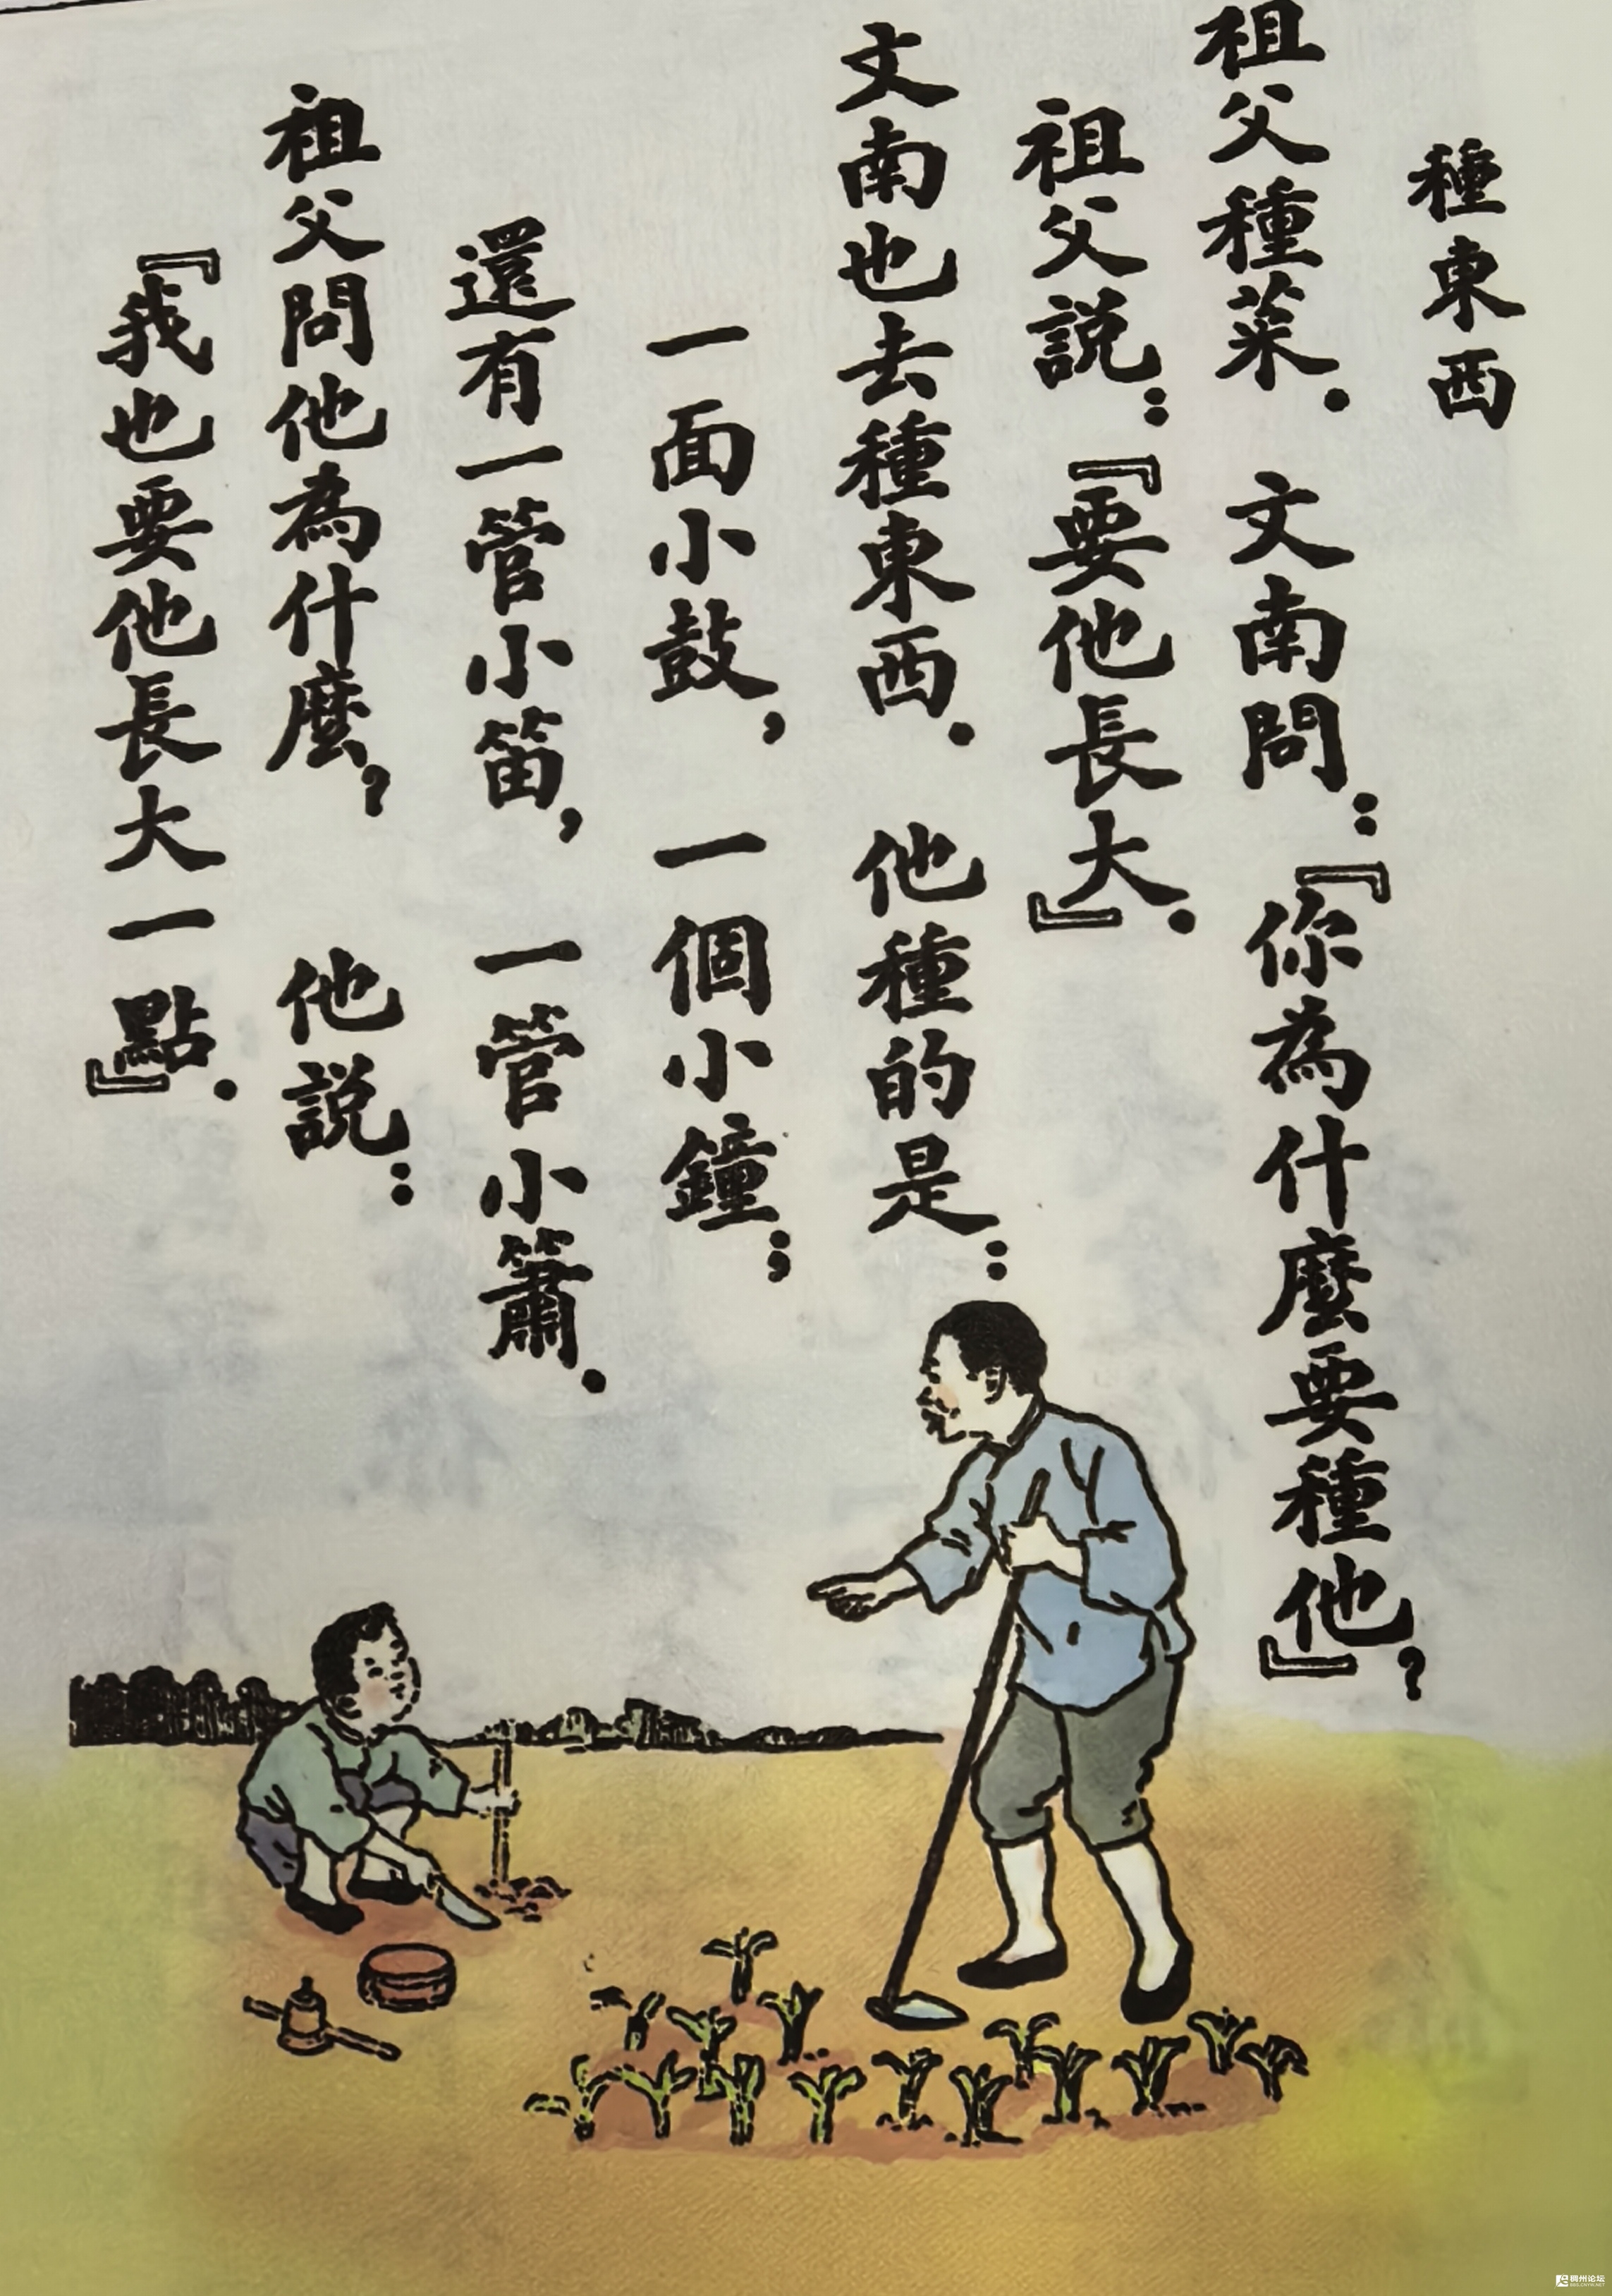 種東西
祖父種菜．文南問：『你為什麼要種他？』
祖父説：『要他長大．』
文南也去種東西．他種的是：
一面小鼓，一個小鐘；
還有一管小笛，一管小簫．
祖父問他為什麼？他説：
『我也要他長大一點．』
稠州论坛